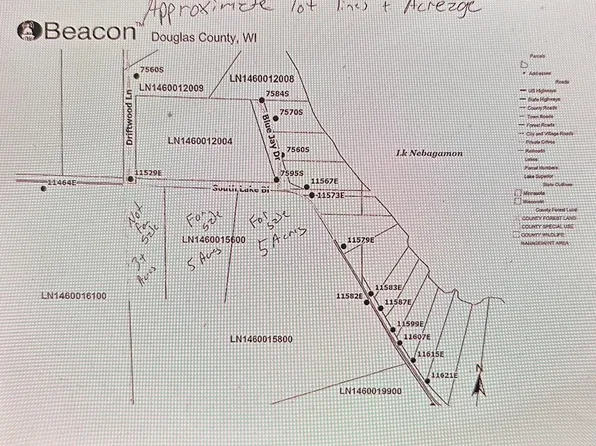 Approximate lot lines + Acreage
Beacon™ Douglas County, WI
7560S
LN1460012009
LN1460012008
7584S
7570S
Driftwood Ln
LN1460012004
Blue Jay Dr
7560S
Lk Nebagamon
11529E
7595S
11464E
South Lake Bl
11567E
11573E
Not
For
Sale
3+
Acres
For
Sale
5 Acres
For
Sale
5 Acres
LN1460015600
11579E
LN1460016100
11583E
11582E
11587E
11599E
11607E
LN1460015800
11615E
11621E
LN1460019900
N
Parcels
Addresses
Roads
US Highways
State Highways
County Roads
Town Roads
Forest Roads
City and Village Roads
Private Drives
Railroads
Lakes
Parcel Numbers
Lake Superior
State Outlines
Minnesota
Wisconsin
County Forest Land
COUNTY FOREST LAND
COUNTY SPECIAL USE
COUNTY WILDLIFE
MANAGEMENT AREA